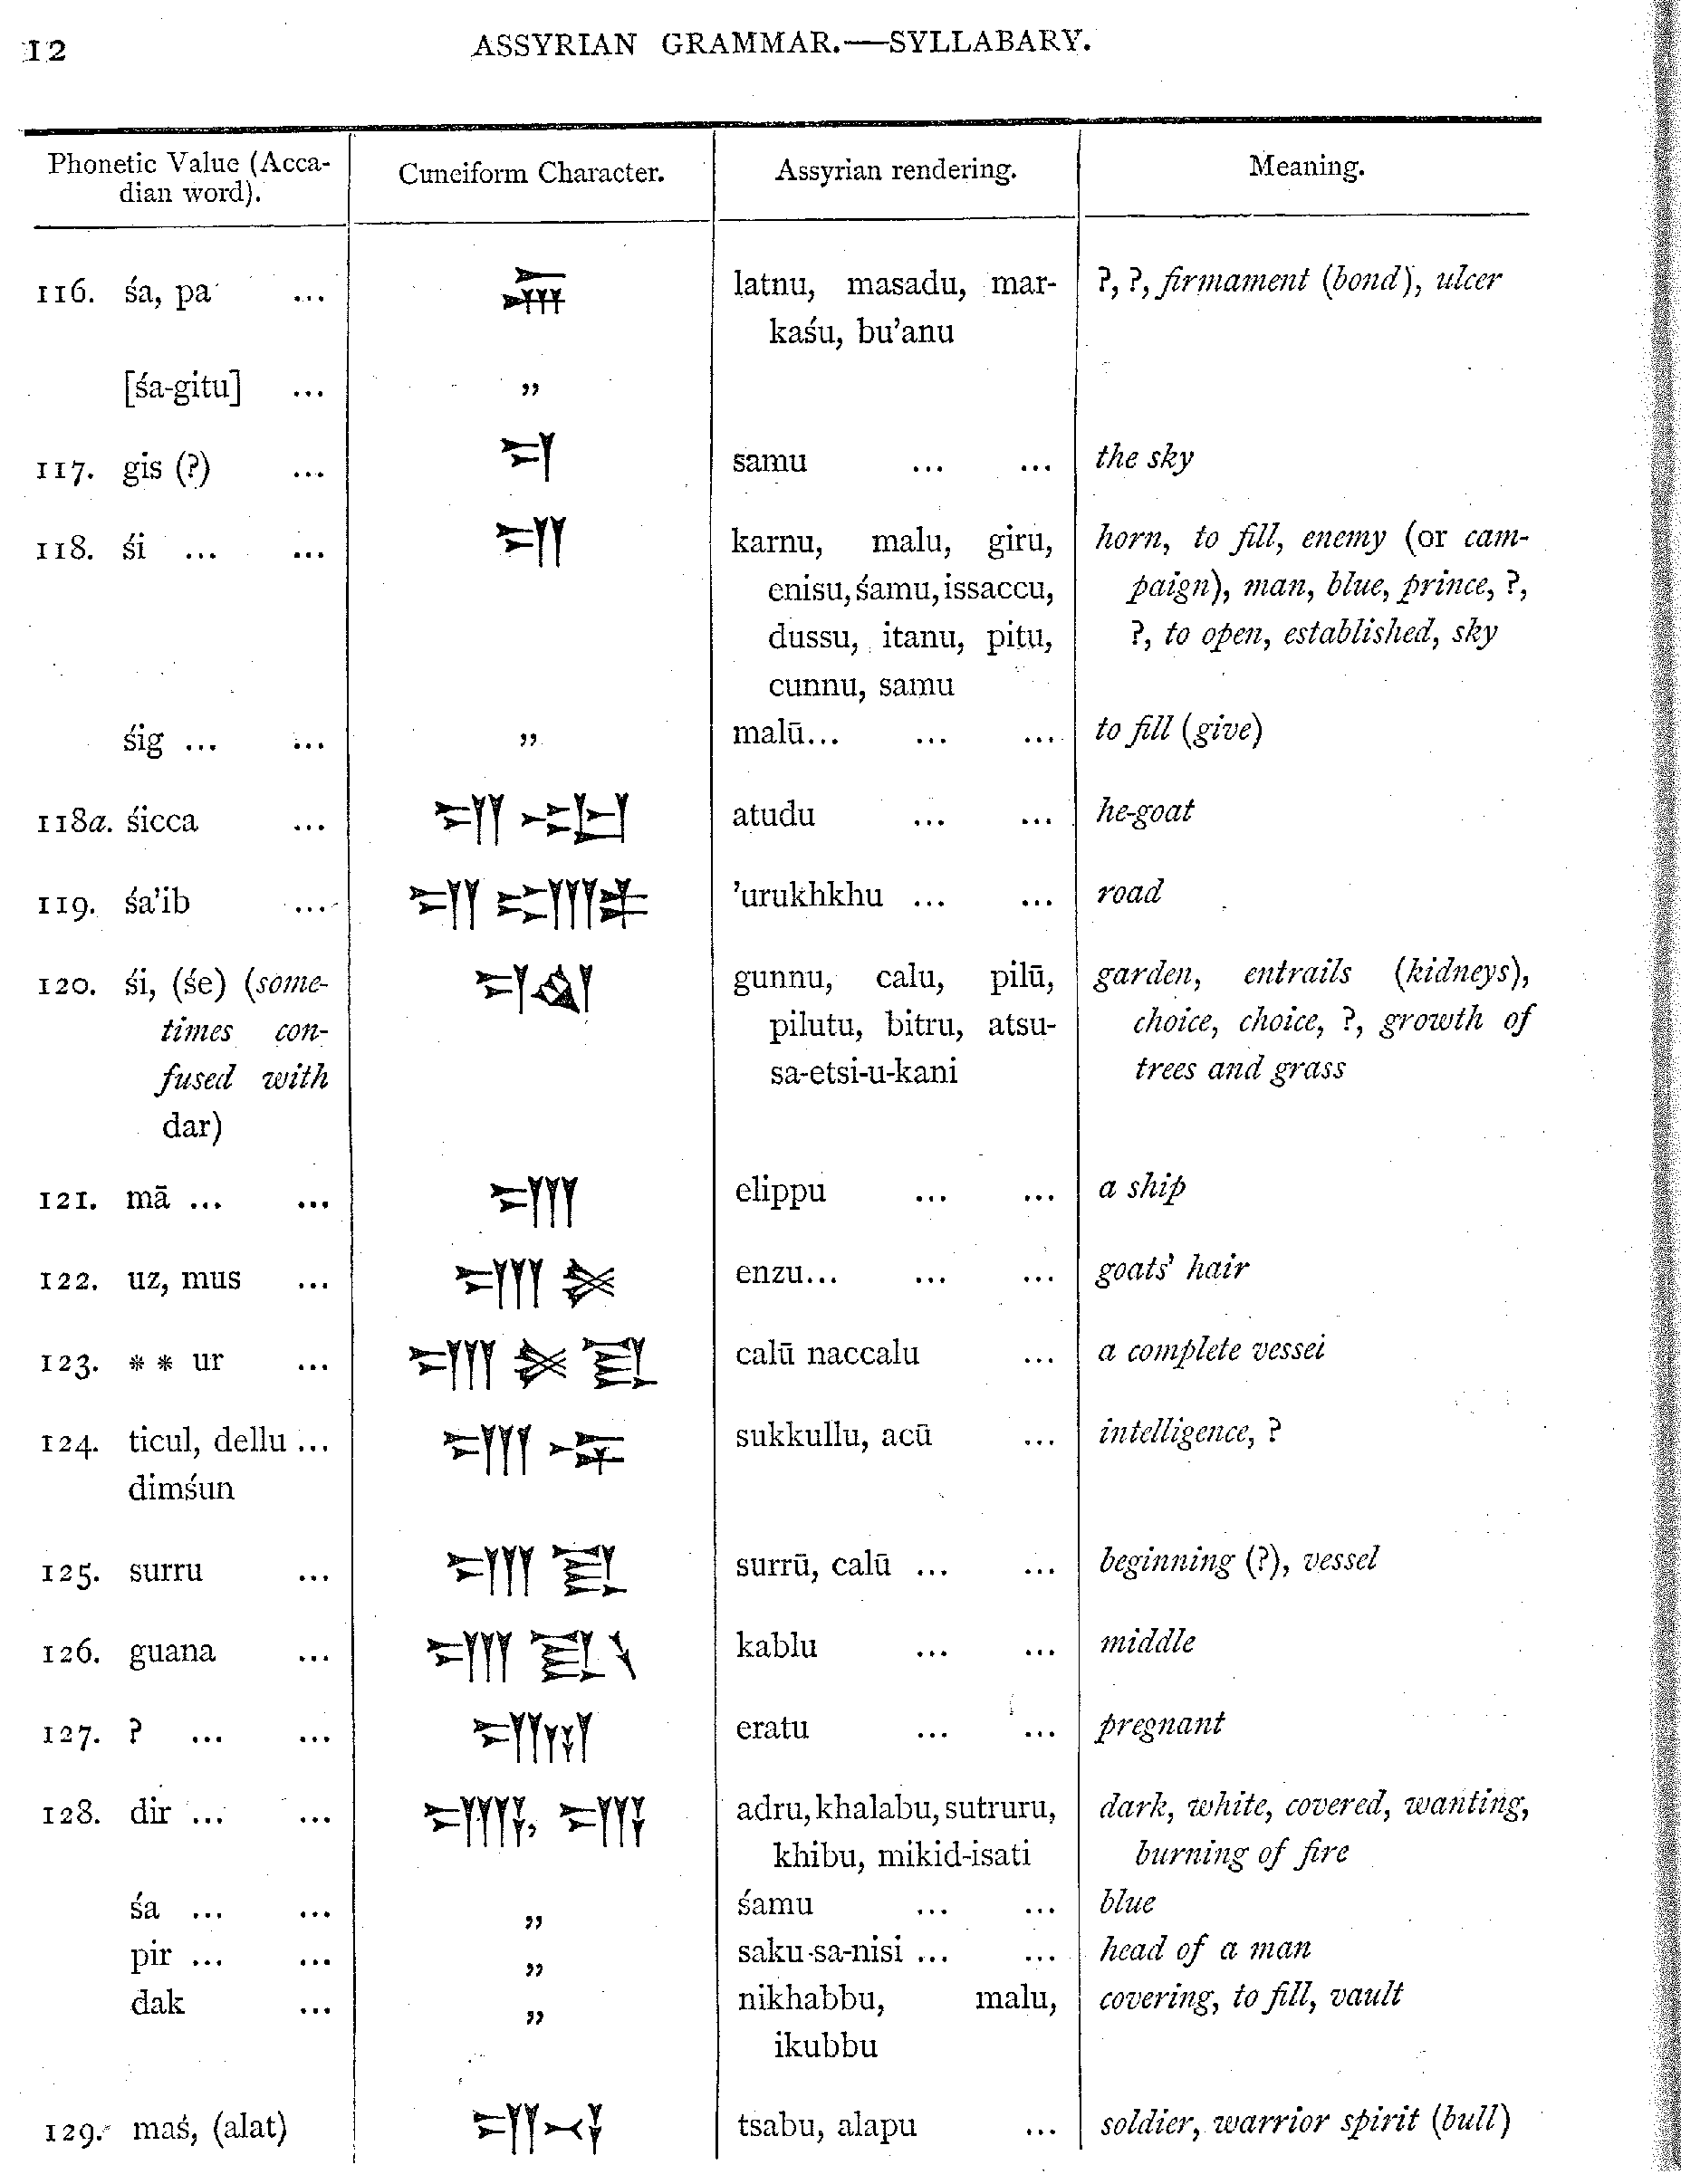 12 ASSYRIAN GRAMMAR.—SYLLABARY.
Phonetic Value (Acca-
dian word).
Cuneiform Character.
Assyrian rendering.
Meaning.
116. śa, pa ... latnu, masadu, mar- ?, ?, firmament (bond), ulcer
kaśu, bu’anu
[śa-gitu] ... „
117. gis (?) ... samu ... ... the sky
118. śi ... ... karnu, malu, giru, horn, to fill, enemy (or cam-
enisu, śamu, issaccu, paign), man, blue, prince, ?,
dussu, itanu, pitu, ?, to open, established, sky
cunnu, samu
śig ... ... „ malū... ... ... to fill (give)
118a. śicca ... atudu ... ... he-goat
119. śa’ib ... ’urukhkhu ... ... road
120. śi, (śe) (some- gunnu, calu, pilū, garden, entrails (kidneys),
times con- pilutu, bitru, atsu- choice, choice, ?, growth of
fused with sa-etsi-u-kani trees and grass
dar)
121. mā ... ... elippu ... ... a ship
122. uz, mus ... enzu... ... ... goats’ hair
123. * * ur ... calū naccalu ... a complete vessel
124. ticul, dellu ... sukkullu, acū ... intelligence, ?
dimśun
125. surru ... surrū, calū ... ... beginning (?), vessel
126. guana ... kablu ... ... middle
127. ? ... ... eratu ... ... pregnant
128. dir ... ... adru, khalabu, sutruru, dark, white, covered, wanting,
khibu, mikid-isati burning of fire
śa ... ... „ śamu ... ... blue
pir ... ... „ saku-sa-nisi ... ... head of a man
dak ... „ nikhabbu, malu, covering, to fill, vault
ikubbu
129. maś, (alat) tsabu, alapu ... soldier, warrior spirit (bull)